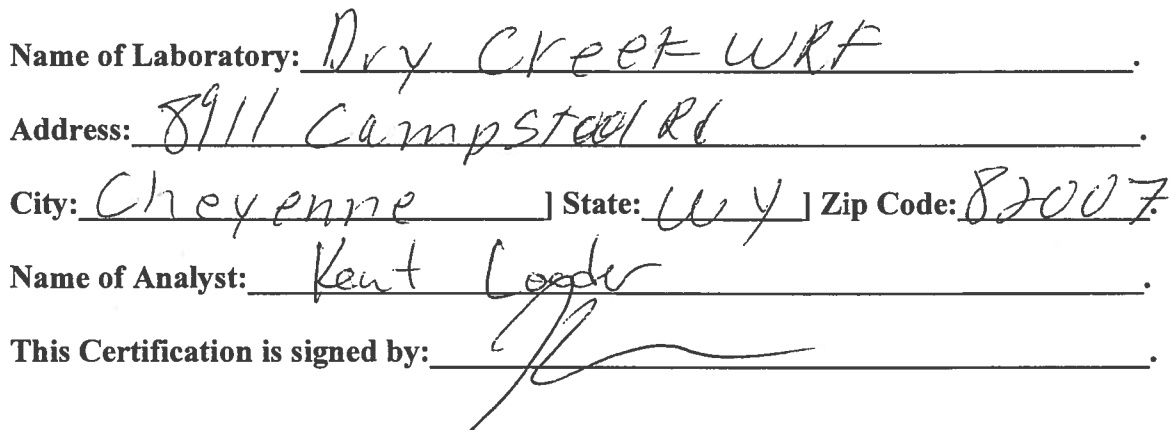 Name of Laboratory: Dry Creek WRF.
Address: 8911 Campstool Rd.
City: Cheyenne ] State: WY ] Zip Code: 82007.
Name of Analyst: Kent .
This Certification is signed by: .